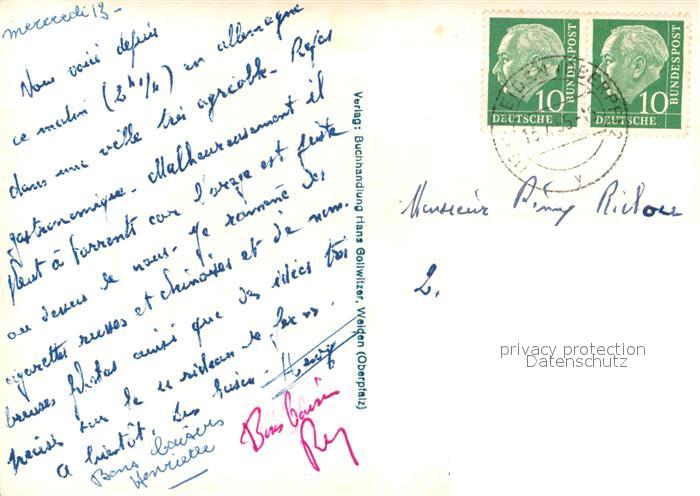 mercredi 13 -
Nous voici depuis
ce matin (2h 1/4) en allemagne
dans une ville très agréable - Repas
gastronomique - Malheureusement il
pleut à torrents car l'orage est juste
au dessus de nous - Je ramène des
cigarettes russes et chinoises et de nom-
breuses photos ainsi que des idées très
précises sur le "rideau de fer" -
A bientôt. Des baisers -
Bons baisers
Henriette
Bons baisers
Verlag: Buchhandlung Hans Gollwitzer, Weiden (Oberpfalz)
10 DEUTSCHE BUNDESPOST
10 DEUTSCHE BUNDESPOST
WEIDEN (OBERPF)
Monsieur Rémy
2.
privacy protection
Datenschutz